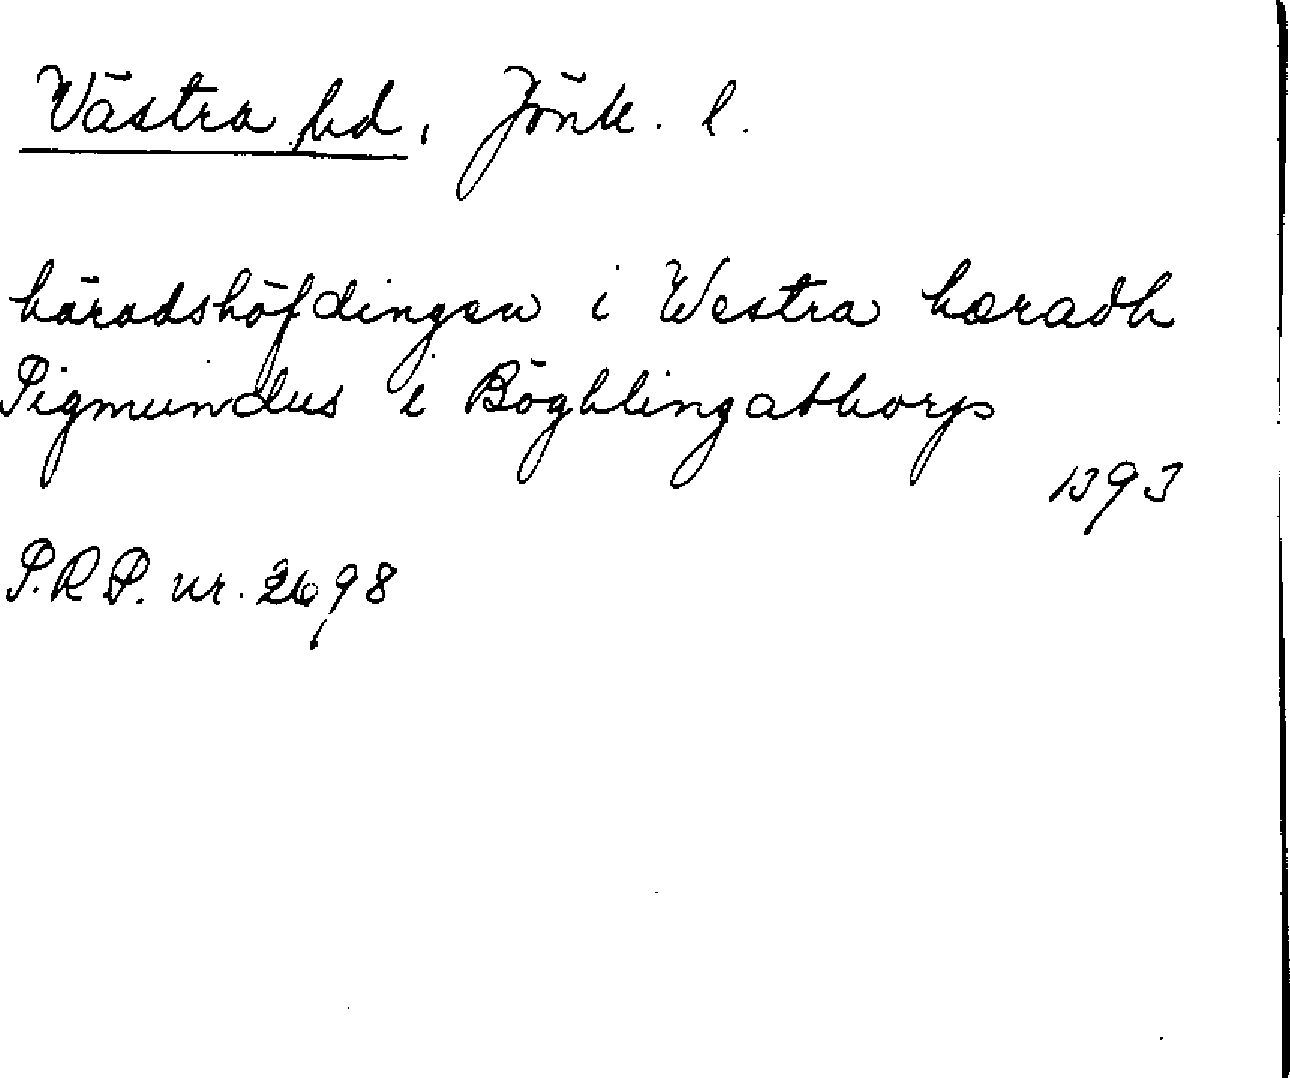 Västra hd, Jönk. l.
häradshöfdingen i Westra hæradh
Sigmundus i Böghlingathorp
1393
P.R.P. nr. 2698